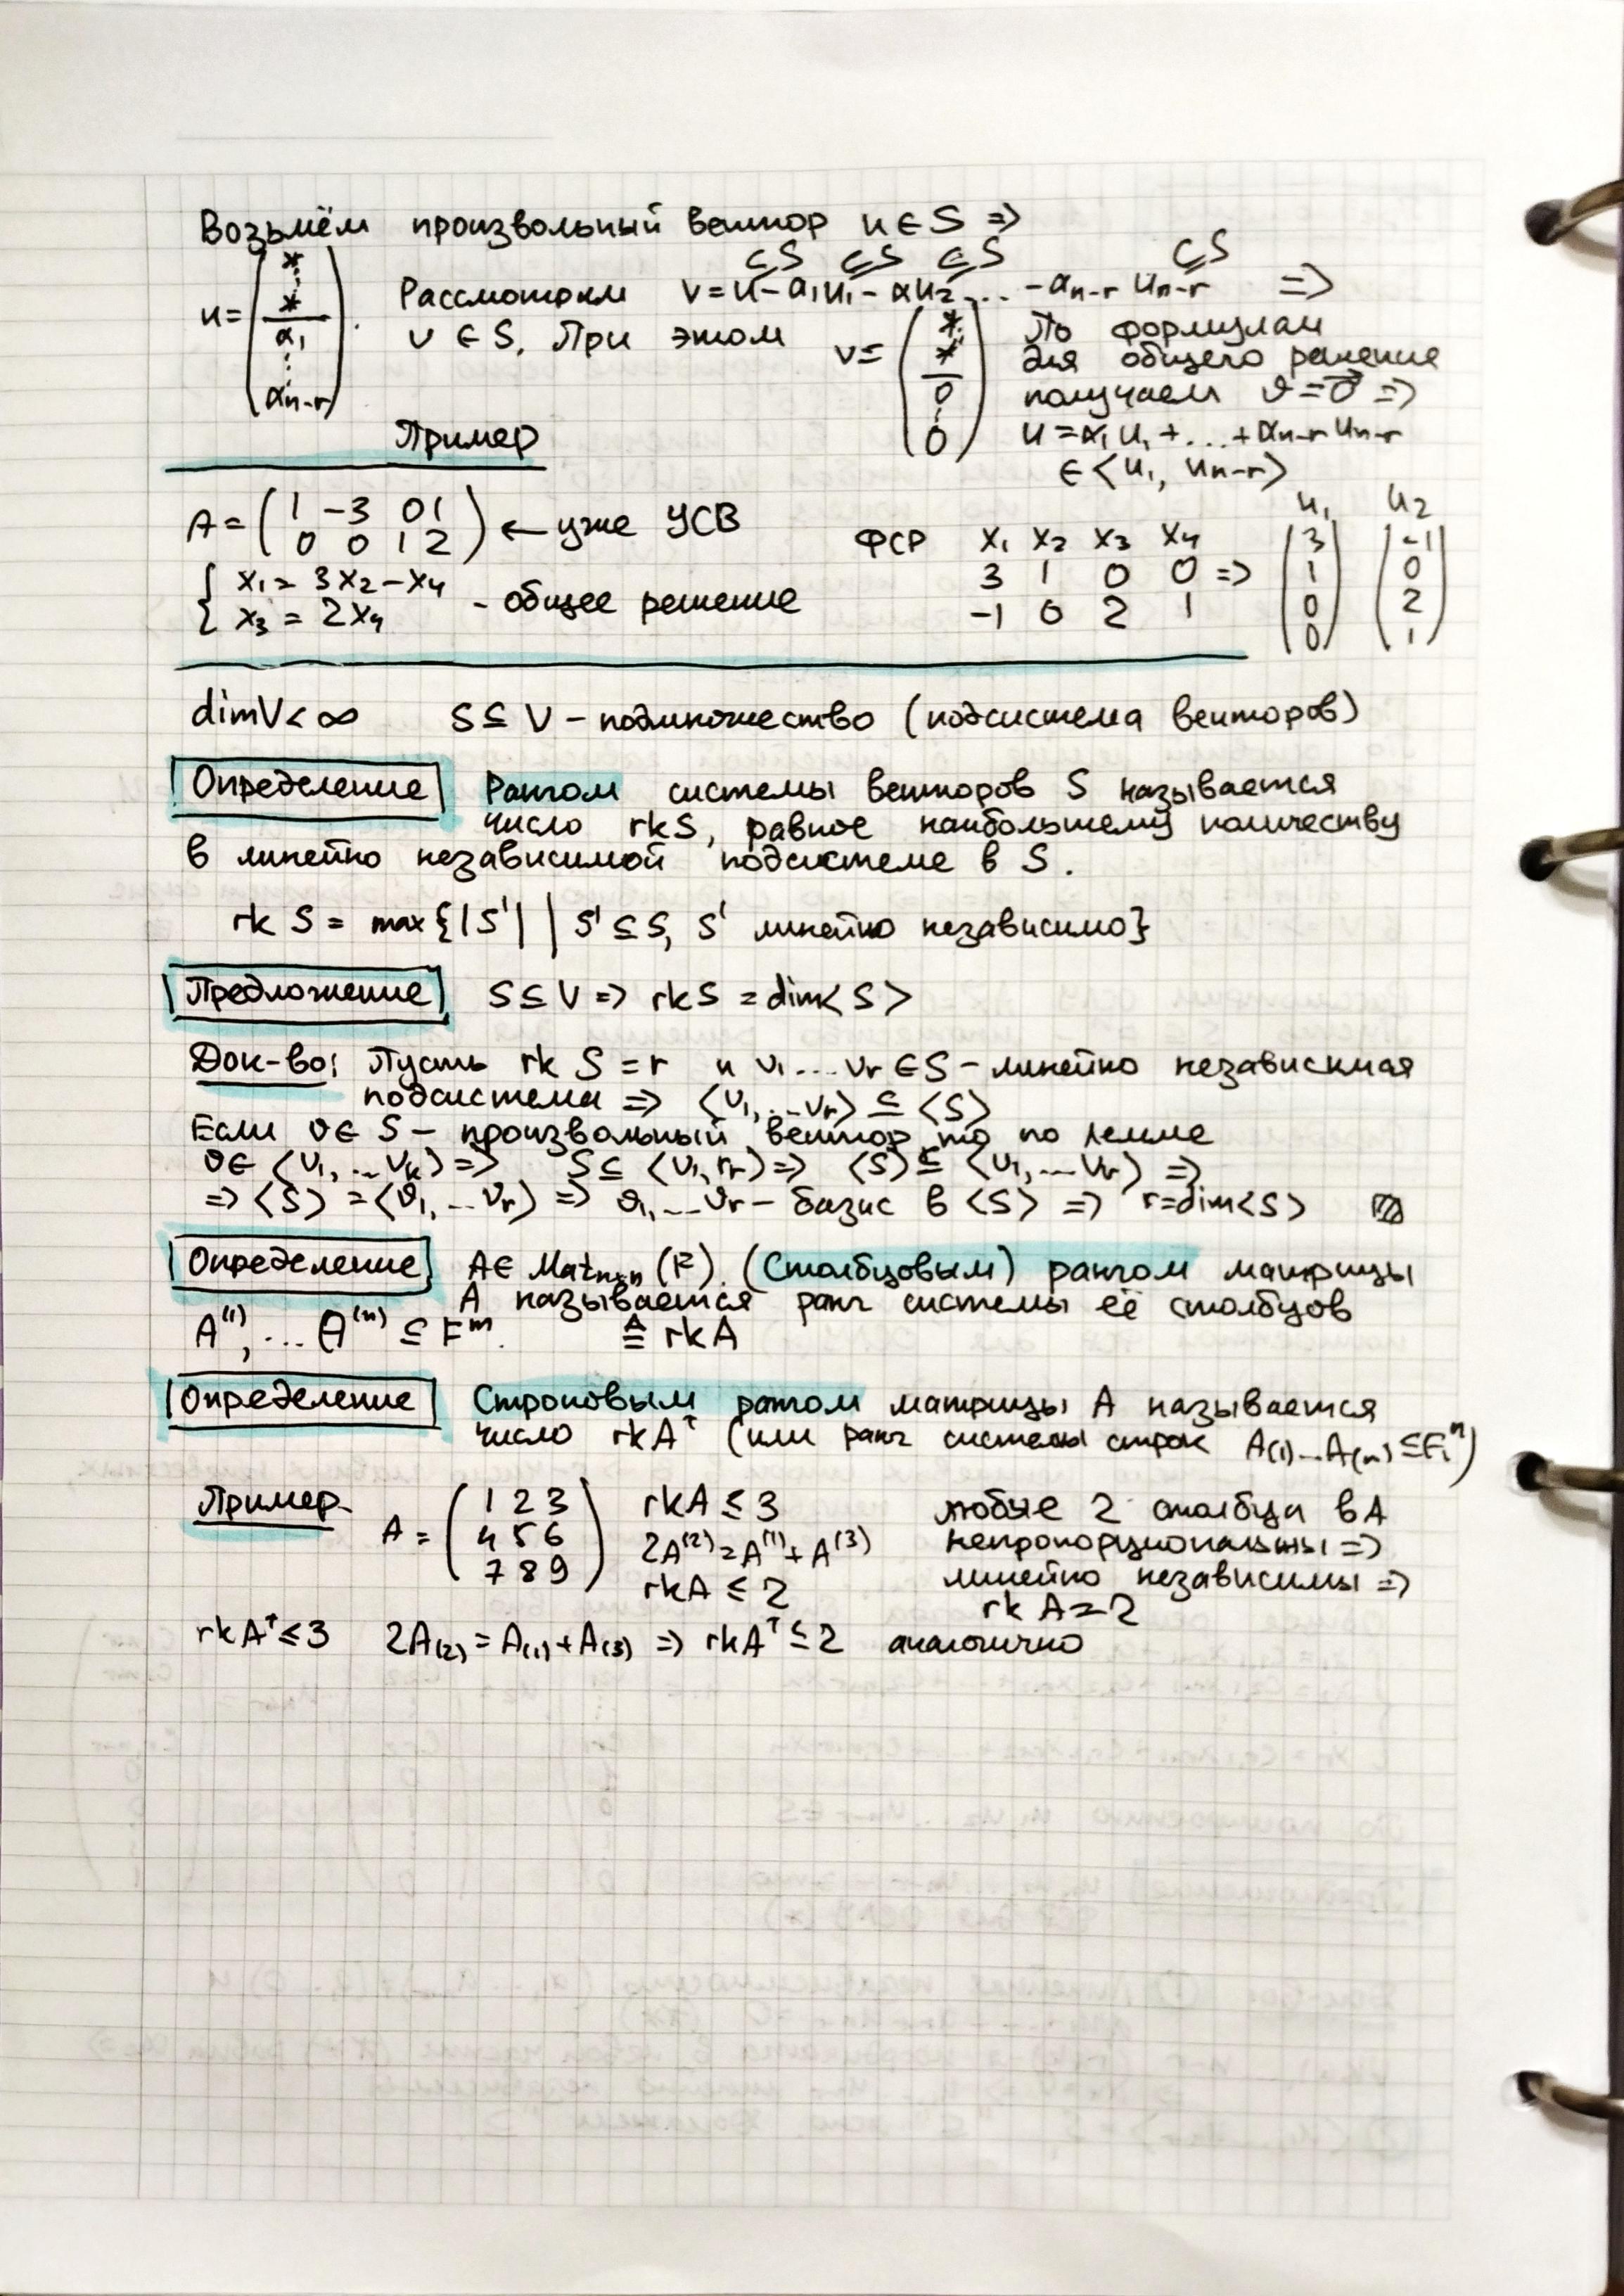 Возьмём произвольный вектор u ∈ S ⇒
u = (* ⋮ * α₁ ⋮ αₙ₋ᵣ).
∈S ∈S ∈S ∈S
Рассмотрим v = u − α₁u₁ − αu₂ ... − αₙ₋ᵣ uₙ₋ᵣ ⇒
v ∈ S. При этом v = (* ⋮ * 0 ⋮ 0)
По формулам
для общего решение
получаем v = 0⃗ ⇒
u = α₁u₁ + ... + αₙ₋ᵣ uₙ₋ᵣ
∈ ⟨u₁, uₙ₋ᵣ⟩
Пример
A = (1 −3 0 1
0 0 1 2) ← уже УСВ
{ x₁ = 3x₂ − x₄
x₃ = 2x₄ - общее решение
ФСР x₁ x₂ x₃ x₄ u₁ u₂
3 1 0 0 ⇒ (3 1 0 0) (-1 0 2 1)
−1 0 2 1
dimV < ∞ S ⊆ V – подмножество (подсистема векторов)
Определение Рангом системы векторов S называется
число rkS, равное наибольшему количеству
в линейно независимой подсистеме в S.
rk S = max{|S'| | S' ⊆ S, S' линейно независимо}
Предложение S ⊆ V ⇒ rkS = dim⟨S⟩
Док-во: Пусть rk S = r и v₁...vᵣ ∈ S – линейно независимая
подсистема ⇒ ⟨v₁,...vᵣ⟩ ⊆ ⟨S⟩
Если v ∈ S – произвольный вектор, то по лемме
v ∈ ⟨v₁,...vₖ⟩ ⇒ S ⊆ ⟨v₁, rᵣ⟩ ⇒ ⟨S⟩ ⊆ ⟨v₁,...vᵣ⟩ ⇒
⇒ ⟨S⟩ = ⟨v₁,...vᵣ⟩ ⇒ v₁,...vᵣ – базис в ⟨S⟩ ⇒ r = dim⟨S⟩ ▨
Определение A ∈ Matₘₓₙ(F). (Столбцовым) рангом матрицы
A называется ранг системы её столбцов
A⁽¹⁾, ... A⁽ⁿ⁾ ⊆ Fᵐ. ≙ rkA
Определение Строковым рангом матрицы A называется
число rkAᵀ (или ранг системы строк A₍₁₎...A₍ₘ₎ ⊆ Fⁿ)
Пример
A = (1 2 3
4 5 6
7 8 9)
rkA ≤ 3
2A⁽²⁾ = A⁽¹⁾ + A⁽³⁾
rkA ≤ 2
любые 2 столбца в A
непропорциональны ⇒
линейно независимы ⇒
rk A = 2
rkAᵀ ≤ 3 2A₍₂₎ = A₍₁₎ + A₍₃₎ ⇒ rkAᵀ ≤ 2 аналогично